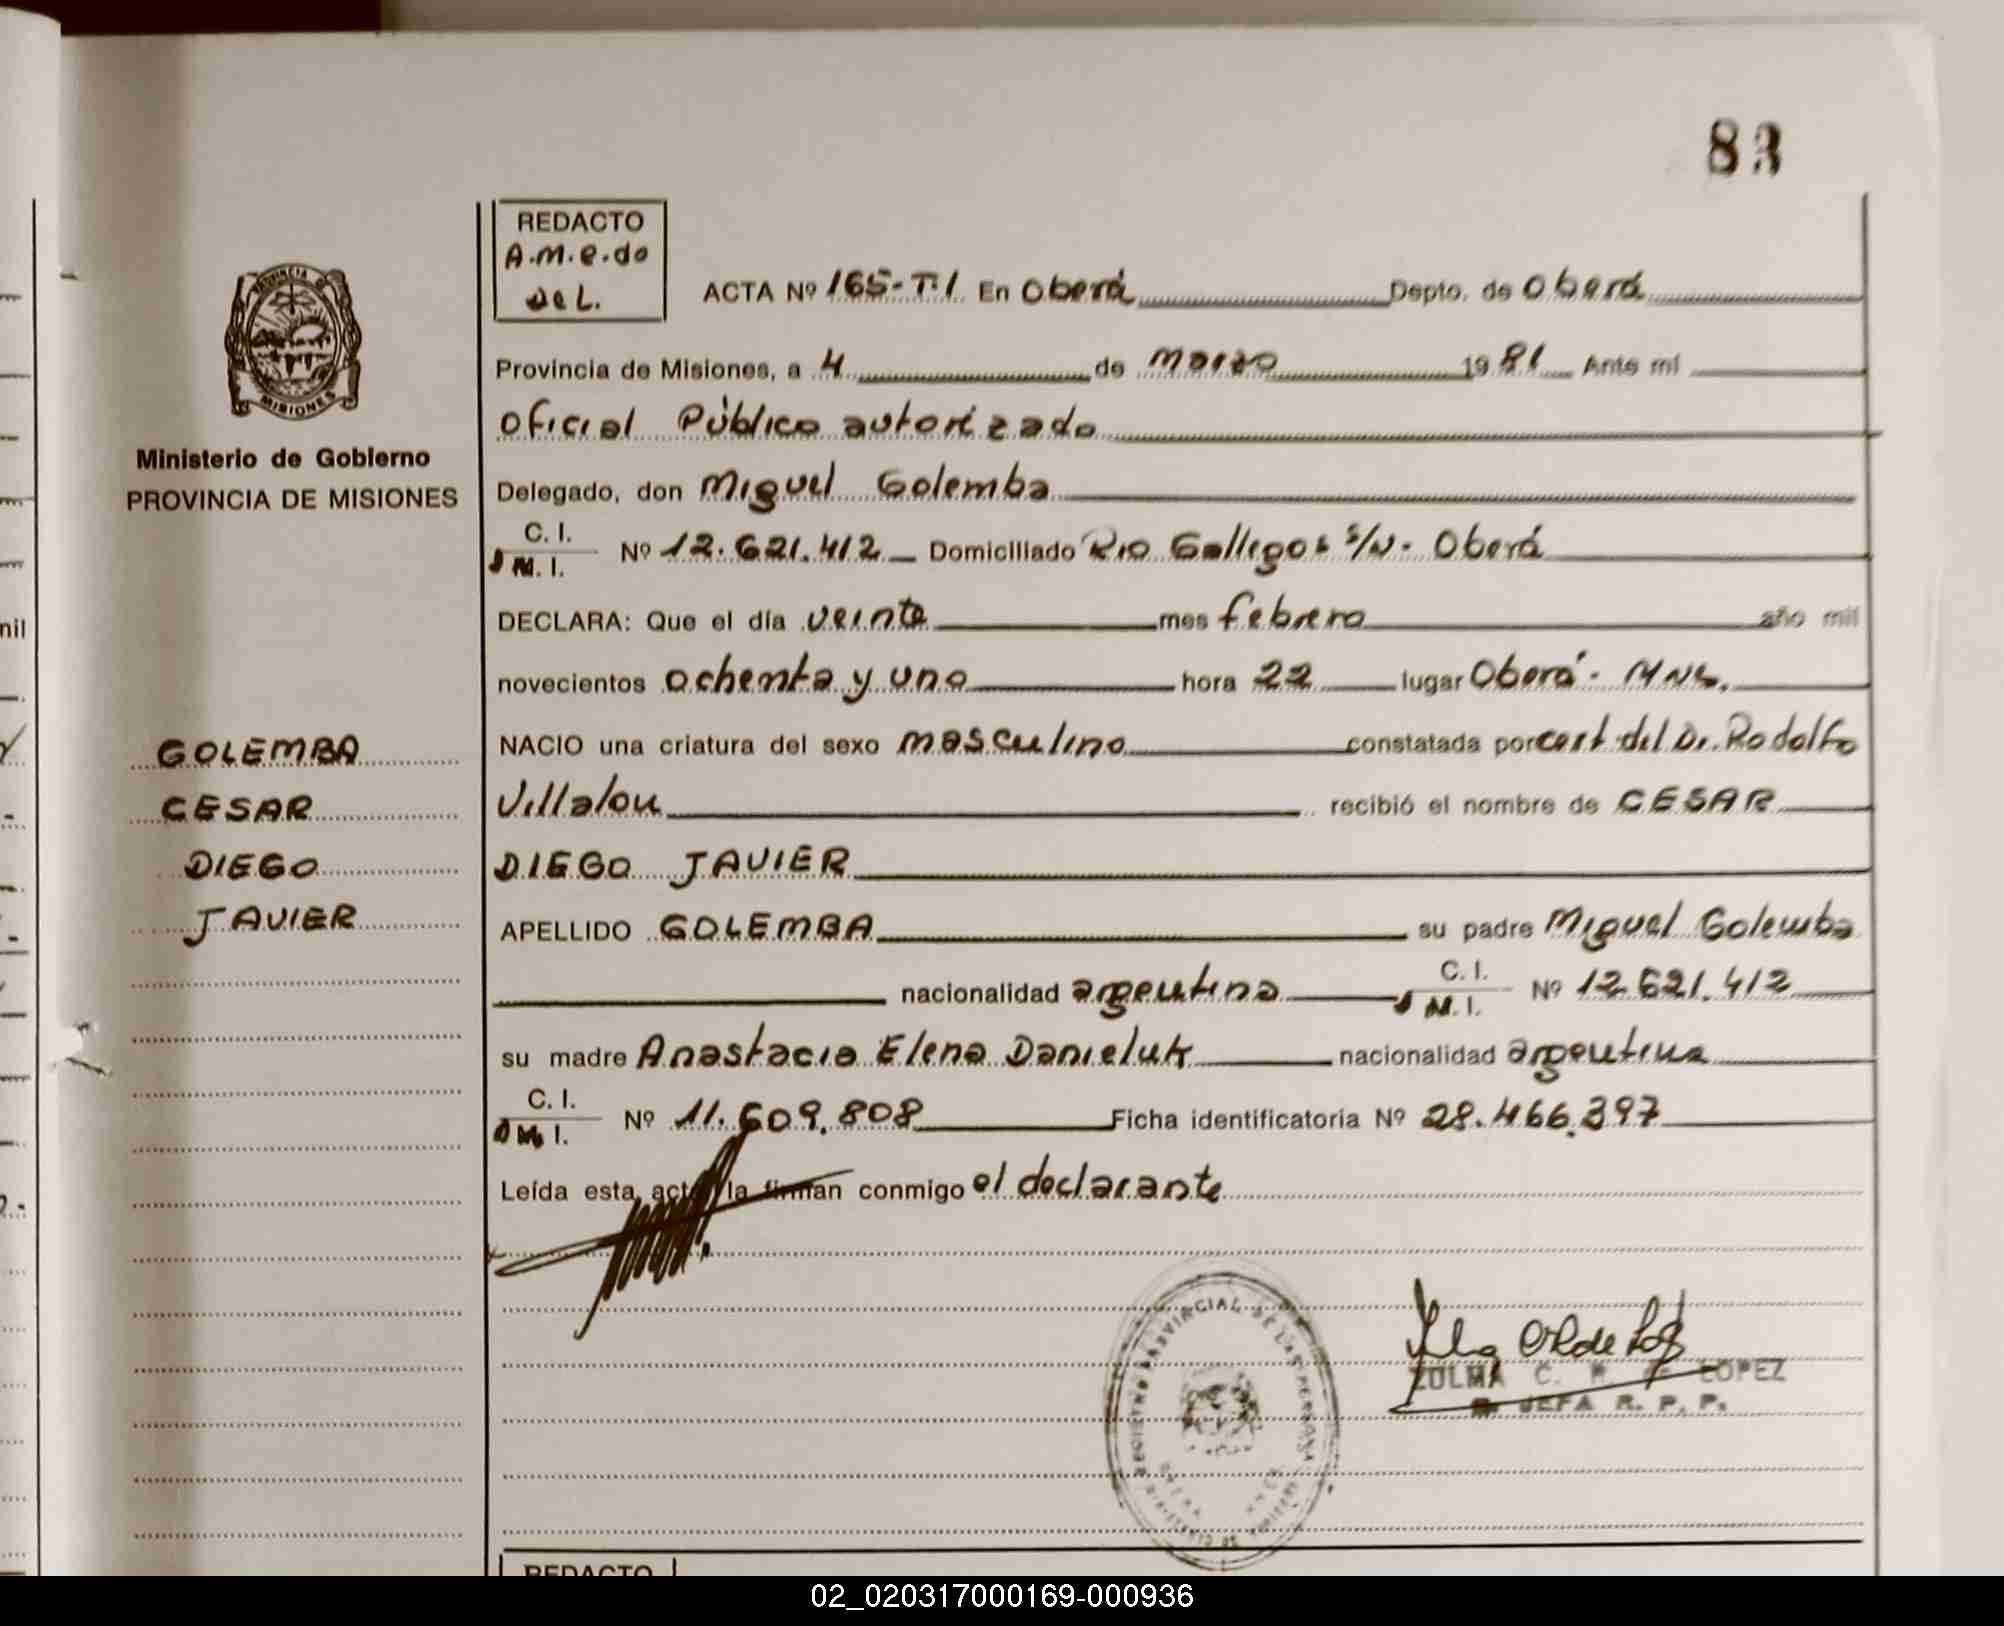 83
REDACTO
A.M.e.do
de L.
ACTA Nº 165-T.I En Oberá Depto. de Oberá
Provincia de Misiones, a 4 de marzo 1981 Ante mí
Oficial Público autorizado
Delegado, don Miguel Golemba
C. I.
M. I. Nº 12.621.412 Domiciliado Rio Gallegos s/n - Oberá
DECLARA: Que el día veinte mes febrero año mil
novecientos ochenta y uno hora 22 lugar Oberá - Mns.
NACIO una criatura del sexo masculino constatada por cert del Dr. Rodolfo
Villalou recibió el nombre de CESAR
DIEGO JAVIER
APELLIDO GOLEMBA su padre Miguel Golemba
nacionalidad argentina C. I.
M. I. Nº 12.621.412
su madre Anastacia Elena Danieluk nacionalidad argentina
C. I.
M. I. Nº 11.609.808 Ficha identificatoria Nº 28.466.397
Leída esta acta la firman conmigo el declarante
ZULMA C. R. LOPEZ
JEFA R. P. P.
PROVINCIA D
MISIONES
Ministerio de Gobierno
PROVINCIA DE MISIONES
GOLEMBA
CESAR
DIEGO
JAVIER
REGISTRO PROVINCIAL DE LAS PERSONAS
nil
REDACTO
02_020317000169-000936